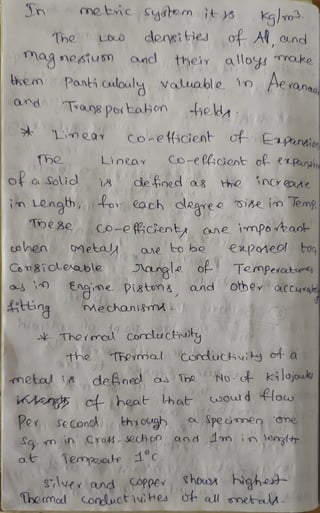 In metric system it is kg/m³.
The Low densities of Al, and
magnesium and their alloys make
them particulauly valuable in
and Transportation fields.
* Linear co-efficient of Expansion
The Linear co-efficient of expansion
of a solid is defined as the increase
in Length, for each degree rise in Temp.
These co-efficients are important
when metals are to be exposed to a
Considerable range of Temperatures
as in Engine pistons, and other accurate
fitting mechanisms.
* Thermal conductivity
The Thermal conductivity of a
metal is defined as The No. of kilojouls
of heat that would flow
Per second through a specimen one
sq. m in cross-section and 1m in length
at Temperate 1°C
Silver and copper shows highest
Thermal conductivities of all metals.